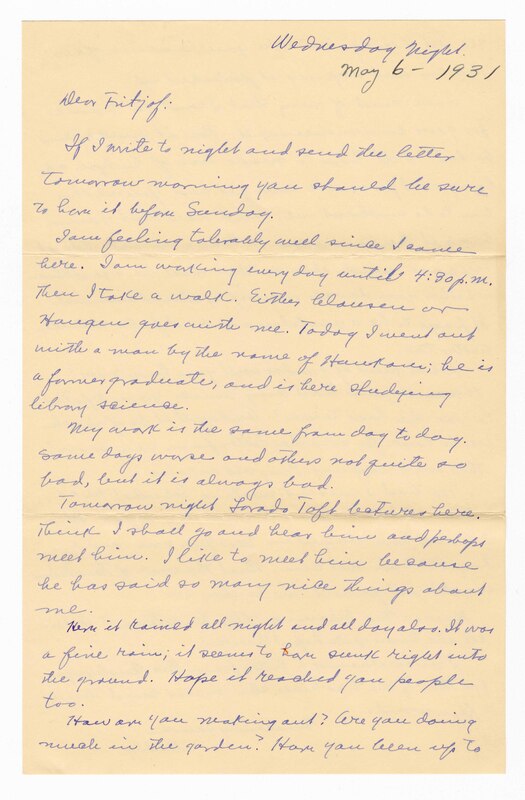 Wednesday Night.
May 6 - 1931
Dear Fritjof:
If I write to night and send the letter
tomorrow morning you should be sure
to have it before Sunday.
I am feeling tolerably well since I came
here. I am working every day until 4:30 p.m.
then I take a walk. Either Clausen or
Haugen goes with me. Today I went out
with a man by the name of Haukom; he is
a former graduate, and is here studying
library science.
My work is the same from day to day.
Some days worse and others not quite so
bad, but it is always bad.
Tomorrow night Lorado Taft lectures here.
Think I shall go and hear him and perhaps
meet him. I like to meet him because
he has said so many nice things about
me.
Here it rained all night and all day also. It was
a fine rain; it seems to have sunk right into
the ground. Hope it reached you people
too.
How are you making out? Are you doing
much in the garden? Have you been up to